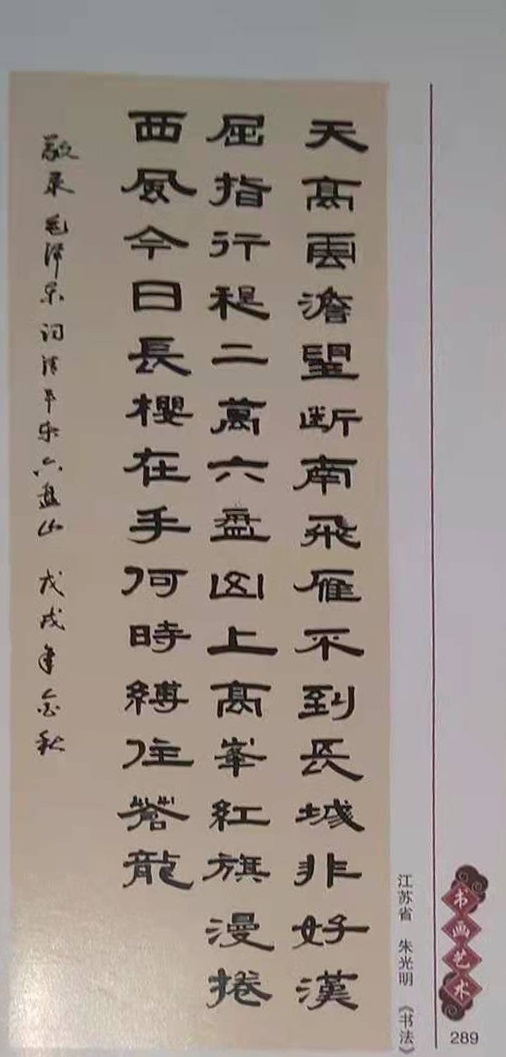 天高雲澹望断南飛雁不到長城非好漢
屈指行程二萬六盤山上高峯紅旗漫捲
西風今日長櫻在手何時縛住蒼龍
敬录毛泽东词清平乐六盘山 戊戌年金秋
江苏省 朱光明 《书法》
书画艺术
289